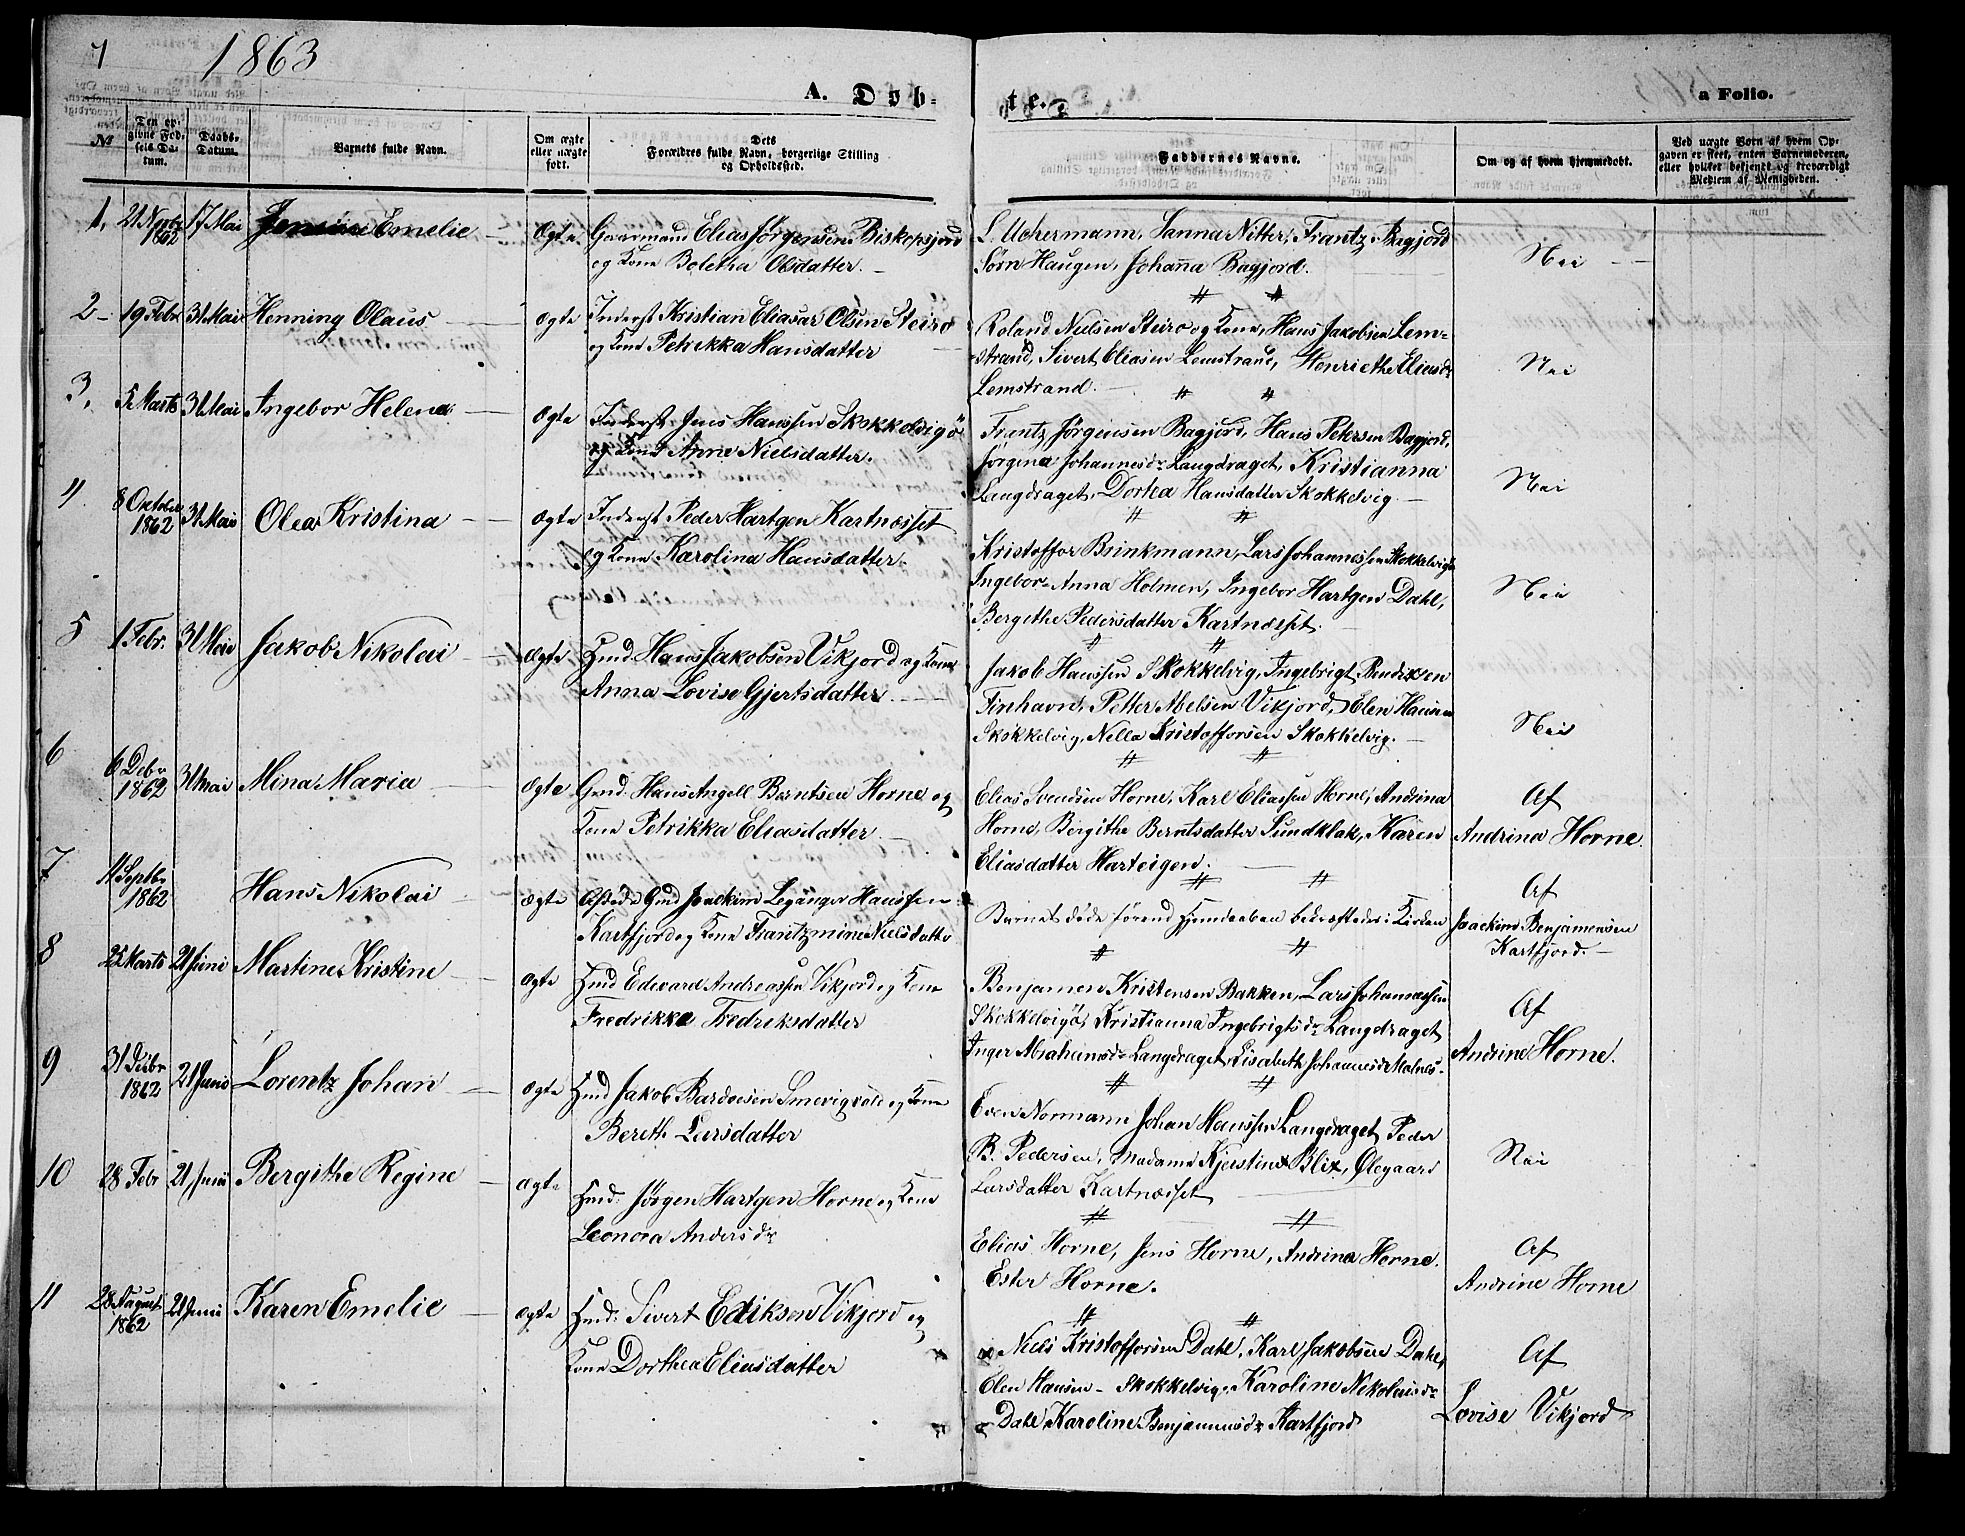 1863
A. Døb-
te.
a Folio.
№
Den opgivne Fødsels Datum.
Daabs-Datum.
Barnets fulde Navn.
Om ægte eller uægte født.
Dets Forældres fulde Navn, borgerlige Stilling og Opholdssted.
Faddernes Navne.
Om og af hvem hjemmedøbt.
Ved uægte Børn af hvem Opgaven er skeet, enten Barnemoderen, eller hvilket bekjendt og troværdigt Medlem af Menigheden.
1, 21 Novbr 1862 17 Mai Emelie Ægte Elias Jørgensen
og Kone Boletha Olsdatter.
L. Uchermann, Sanna Nitter, Frantz Bagjord
Sørn Haugen, Johanna Bagjord.
Nei
2 19 Febr 31 Mai Henning Olaus Ægte Inderst Kristian Eliasar Olsen Steiro
og Kone Petrikka Hansdatter
Roland Nielsen Steiro og Kone, Hans Jakobsen Lem-
strand, Sivert Eliasen Lemstrand, Henriethe Eliasdr
Lemstrand.
Nei
3, 5 Marts 31 Mai Angebor Helena Ægte Inderst Jens Hanssen Skokkelvigö
og Kone Anne Nielsdatter.
Frantz Jørgensen Bagjord, Hans Petersen Bagjord,
Jørgina Johannesdr Langdraget, Kristianna
Langdraget, Dorthea Hansdatter Skokkelvig.
Nei
4 8 Oktober 1862 31 Mai Olea Kristina Ægte Inderst Peder Hartgen Kartnæsset
og Kone Karolina Hansdatter.
Kristoffor Brinkmann, Lars Johannessen Skokkelvigö
Ingebor Anna Holmen, Ingebor Hartgen Dahl,
Bergithe Pedersdatter Kartnæsset.
Nei
5 1 Febr. 31 Mai Jakob Nikolai Ægte Gmd. Hans Jakobsen Vikjord og Kone
Anna Lovise Gjertsdatter.
Jakob Hanssen Skokkelvig, Ingebrigt Bendixen
Finhavn, Petter Nielsen Vikjord, Elen Hansen
Skokkelvig, Nella Kristoffersen Skokkelvig.
Nei
6 6 Debr 1862 31 Mai Mina Maria Ægte Gmd. Hans Angell Berntsen Horne og
Kone Petrikka Eliasdatter
Elias Svendsen Horne, Karl Eliassen Horne, Andrina
Horne, Bergithe Berntsdatter Sundklak, Karen
Eliasdatter Harteigen.
Af
Andrina Horne.
7 11 Septbr 1862 Hans Nikolai Ægte Afdøde Gmd Joackim Legänger Hanssen
Kartfjord og Kone Frantzmine Nielsdatter
Barnet døde førend Hjemdaaben bekræftedes i Kirken
Af
Joackim Benjaminsen
Kartfjord.
8 25 Marts 21 Juni Martine Kristine Ægte Gmd Edward Andreassen Vikjord og Kone
Fredrikke Fredriksdatter
Benjamen Kristensen Bakken, Lars Johannessen
Skokkelvigö, Kristianna Ingebrigtsdr Langdraget
Inger Abrahamsdr Langdraget, Lisabeth Johannesdr Molnes.
Af
Andrine Horne.
9 31 Debr 1862 21 Juni Lorentz Johan Ægte Gmd Jakob Bardosen Smevigvold og Kone
Bereth Larsdatter
Even Normann, Johan Hanssen Langdraget, Peder
B. Pedersen, Madame Kjerstine Blix, Olegaard
Larsdatter Kartnæsset
Nei
10 28 Febr 21 Juni Bergithe Regine Ægte Gmd. Jørgen Hartgen Horne og Kone
Leonora Andersdr
Elias Horne, Jens Horne, Andrina Horne.
Ester Horne.
Af
Andrine Horne
11 28 August 1862 21 Juni Karen Emelie Ægte Gmd. Sivert Ediksen Vikjord og
Kone Dorthea Eliasdatter
Niels Kristoffersen Dahl, Karl Jakobsen Dahl,
Elen Hansen Skokkelvig, Karoline Nikolaisdr
Dahl, Karoline Benjaminsdr Kartfjord
Af
Lovise Vikjord